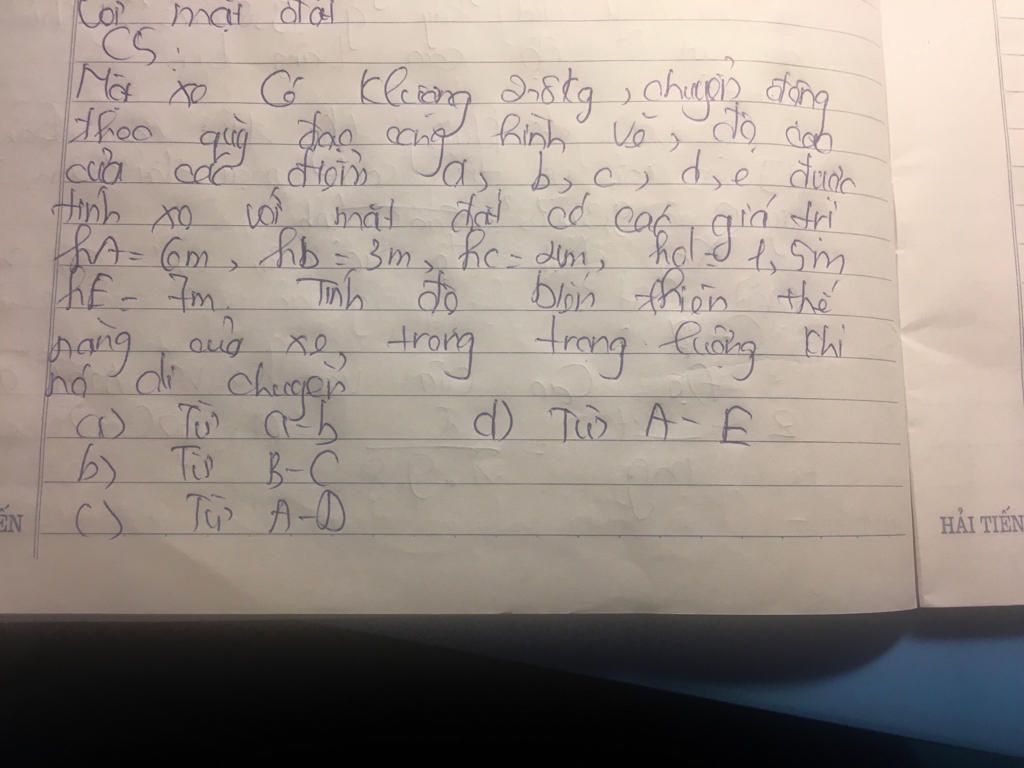 với mặt đất
C5.
Một xe có klượng 2,8kg, chuyển động
theo quỹ đạo cong hình vẽ, độ cao
của các điểm a, b, c, d, e được
tính xo với mặt đất có các giá trị
hA = 6m, hb = 3m, hc = 4m, hd = 1,5m
hE = 7m. Tính độ biến thiên thế
năng của xe trong trọng lường khi
nó di chuyển
a) Từ a-b d) Từ A - E
b) Từ B-C
c) Từ A-D
ẾN
HẢI TIẾN